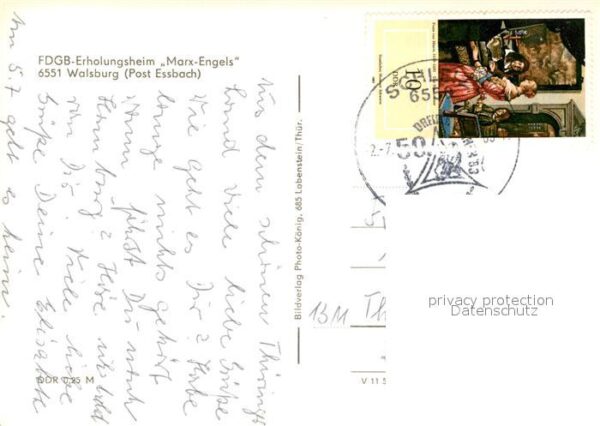 FDGB-Erholungsheim „Marx-Engels"
6551 Walsburg (Post Essbach)
Aus dem schönen Thüringer
Land viele liebe Grüße
Wie geht es Dir? Habe
lange nichts gehört
wann fährst Du nach
Hamburg? Höre als bald
von Dir. Viele liebe
Grüße Deine Elisabeth
Am 5.7 geht es heim.
DDR 0,25 M
Bildverlag Photo-König, 685 Lobenstein/Thür.
V 11 5
DDR
10
SCHLE
655
50
13M Th
privacy protection
Datenschutz